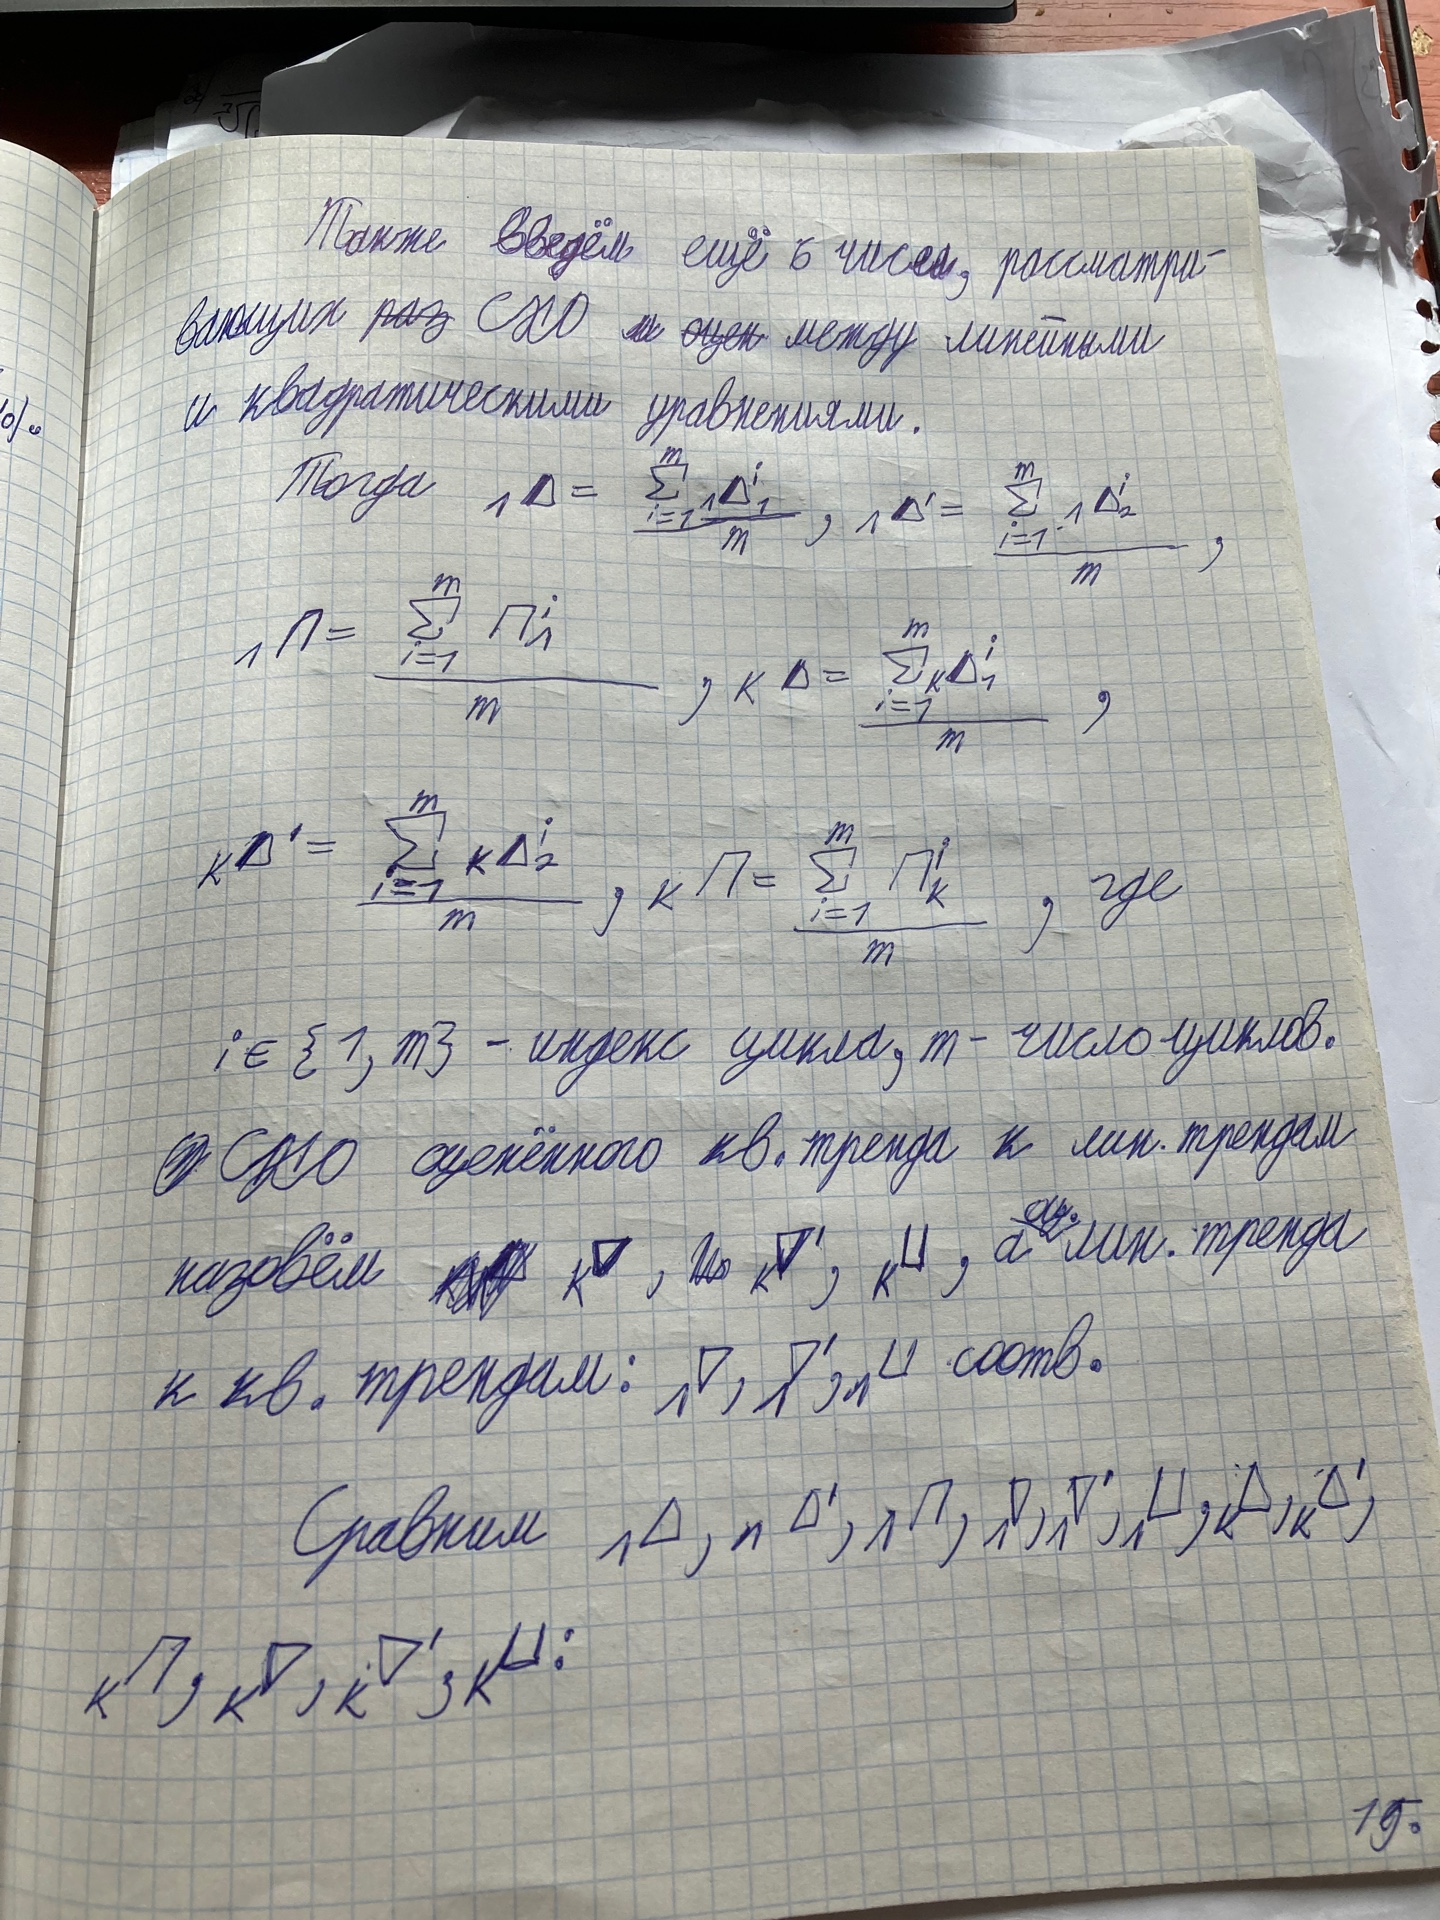 Также введём ещё 6 чисел, рассматри-
вающих раз СКО и оцен между линейными
и квадратическими уравнениями.
Тогда ₗΔ = (∑_{i=1}^{m} ₗΔ₁ⁱ)/m , ₗΔ' = (∑_{i=1}^{m} ₗΔ₂ⁱ)/m ,
ₗП = (∑_{i=1}^{m} Пₗⁱ)/m , кΔ = (∑_{i=1}^{m} кΔ₁ⁱ)/m ,
кΔ' = (∑_{i=1}^{m} кΔ₂ⁱ)/m , кП = (∑_{i=1}^{m} Пкⁱ)/m , где
i ∈ {1, m} - индекс цикла, m - число циклов.
СКО оценённого кв. тренда к лин. трендам
назовём к∇ , к∇', к⊔ , а оц. лин. тренда
к кв. трендам: ₗ∇, ₗ∇', ₗ⊔ соотв.
Сравним ₗΔ, ₗΔ', ₗП, ₗ∇, ₗ∇', ₗ⊔, кΔ, кΔ',
кП, к∇, к∇', к⊔:
15.